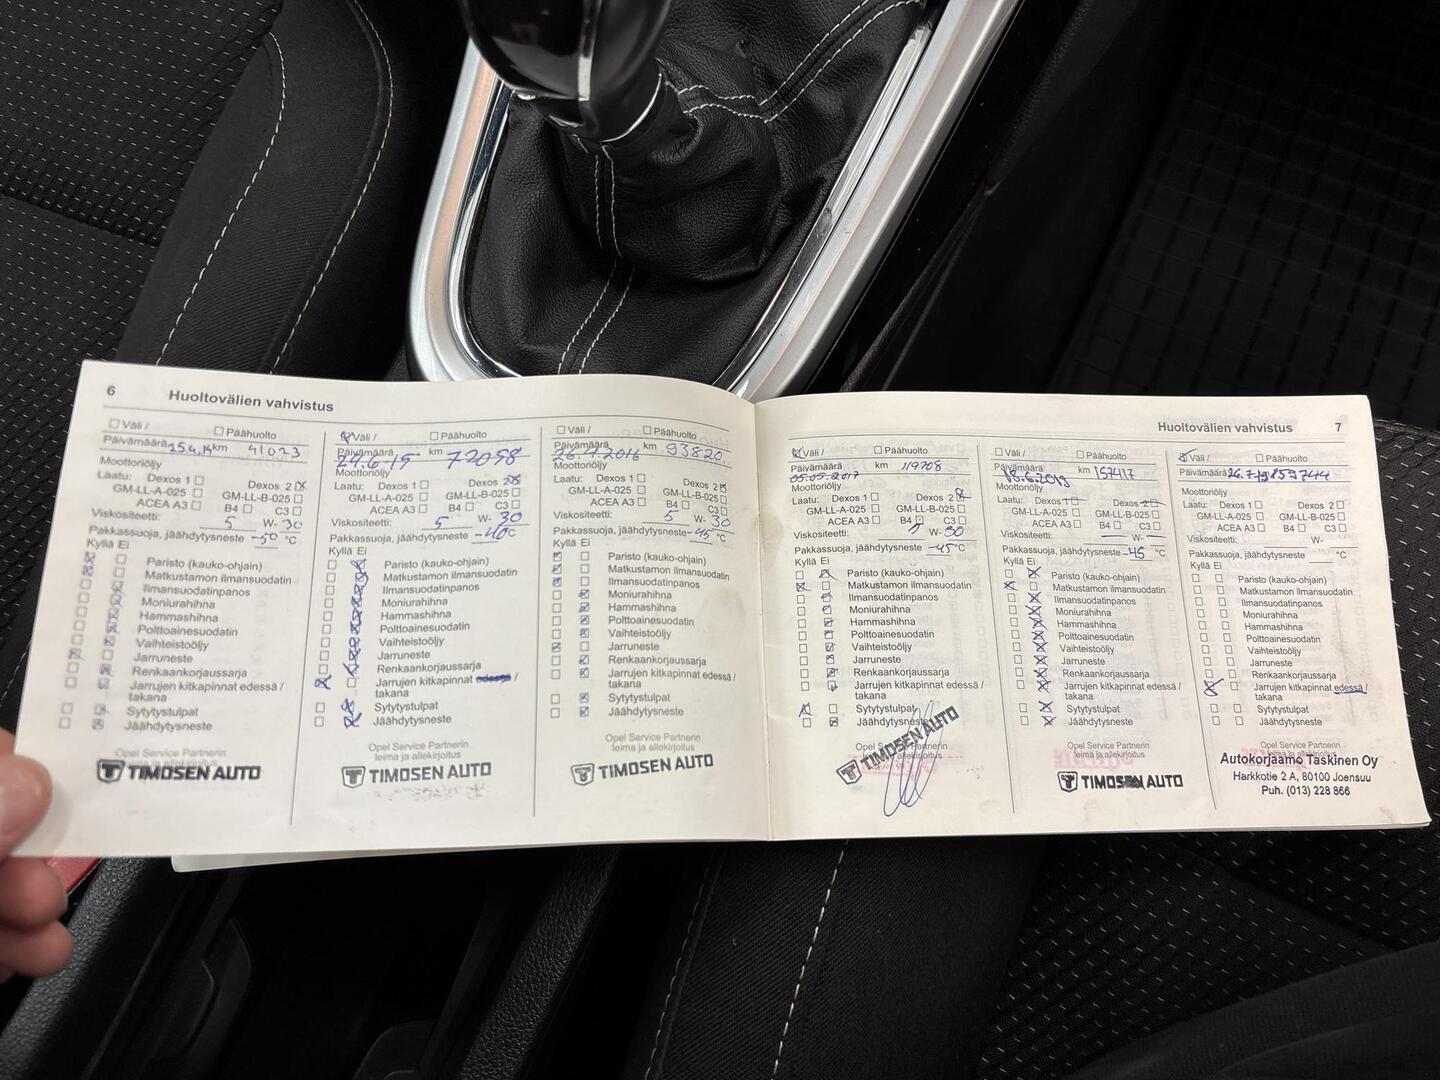 6
Huoltovälien vahvistus
Väli /
Päähuolto
Päivämäärä 25.4.14 km 41023
Moottoriöljy
Laatu: Dexos 1 Dexos 2
GM-LL-A-025 GM-LL-B-025
ACEA A3 B4 C3
Viskositeetti: 5 W- 30
Pakkassuoja, jäähdytysneste -50 °C
Kyllä Ei
Paristo (kauko-ohjain)
Matkustamon ilmansuodatin
Ilmansuodatinpanos
Moniurahihna
Hammashihna
Polttoainesuodatin
Vaihteistoöljy
Jarruneste
Renkaankorjaussarja
Jarrujen kitkapinnat edessä /
takana
Sytytystulpat
Jäähdytysneste
Opel Service Partnerin
leima ja allekirjoitus
TIMOSEN AUTO
Väli /
Päähuolto
Päivämäärä 24.6.15 km 72058
Moottoriöljy
Laatu: Dexos 1 Dexos 2
GM-LL-A-025 GM-LL-B-025
ACEA A3 B4 C3
Viskositeetti: 5 W- 30
Pakkassuoja, jäähdytysneste -40 °C
Kyllä Ei
Paristo (kauko-ohjain)
Matkustamon ilmansuodatin
Ilmansuodatinpanos
Moniurahihna
Hammashihna
Polttoainesuodatin
Vaihteistoöljy
Jarruneste
Renkaankorjaussarja
Jarrujen kitkapinnat edessä /
takana
Sytytystulpat
Jäähdytysneste
Opel Service Partnerin
leima ja allekirjoitus
TIMOSEN AUTO
Väli /
Päähuolto
Päivämäärä 26.4.2016 km 93820
Moottoriöljy
Laatu: Dexos 1 Dexos 2
GM-LL-A-025 GM-LL-B-025
ACEA A3 B4 C3
Viskositeetti: 5 W- 30
Pakkassuoja, jäähdytysneste -45 °C
Kyllä Ei
Paristo (kauko-ohjain)
Matkustamon ilmansuodatin
Ilmansuodatinpanos
Moniurahihna
Hammashihna
Polttoainesuodatin
Vaihteistoöljy
Jarruneste
Renkaankorjaussarja
Jarrujen kitkapinnat edessä /
takana
Sytytystulpat
Jäähdytysneste
Opel Service Partnerin
leima ja allekirjoitus
TIMOSEN AUTO
Huoltovälien vahvistus
7
Väli /
Päähuolto
Päivämäärä 05.05.2017 km 119708
Moottoriöljy
Laatu: Dexos 1 Dexos 2
GM-LL-A-025 GM-LL-B-025
ACEA A3 B4 C3
Viskositeetti: 5 W- 30
Pakkassuoja, jäähdytysneste -45 °C
Kyllä Ei
Paristo (kauko-ohjain)
Matkustamon ilmansuodatin
Ilmansuodatinpanos
Moniurahihna
Hammashihna
Polttoainesuodatin
Vaihteistoöljy
Jarruneste
Renkaankorjaussarja
Jarrujen kitkapinnat edessä /
takana
Sytytystulpat
Jäähdytysneste
Opel Service Partnerin
leima ja allekirjoitus
TIMOSEN AUTO
Väli /
Päähuolto
Päivämäärä 18.6.2018 km 157117
Moottoriöljy
Laatu: Dexos 1 Dexos 2
GM-LL-A-025 GM-LL-B-025
ACEA A3 B4 C3
Viskositeetti: W-
Pakkassuoja, jäähdytysneste -45 °C
Kyllä Ei
Paristo (kauko-ohjain)
Matkustamon ilmansuodatin
Ilmansuodatinpanos
Moniurahihna
Hammashihna
Polttoainesuodatin
Vaihteistoöljy
Jarruneste
Renkaankorjaussarja
Jarrujen kitkapinnat edessä /
takana
Sytytystulpat
Jäähdytysneste
Opel Service Partnerin
leima ja allekirjoitus
TIMOSEN AUTO
Väli /
Päähuolto
Päivämäärä
Moottoriöljy
Laatu: Dexos 1 Dexos 2
GM-LL-A-025 GM-LL-B-025
ACEA A3 B4 C3
Viskositeetti: W-
Pakkassuoja, jäähdytysneste °C
Kyllä Ei
Paristo (kauko-ohjain)
Matkustamon ilmansuodatin
Ilmansuodatinpanos
Moniurahihna
Hammashihna
Polttoainesuodatin
Vaihteistoöljy
Jarruneste
Renkaankorjaussarja
Jarrujen kitkapinnat edessä /
takana
Sytytystulpat
Jäähdytysneste
Opel Service Partnerin
leima ja allekirjoitus
Autokorjaamo Taskinen Oy
Harkkotie 2 A, 80100 Joensuu
Puh. (013) 228 866